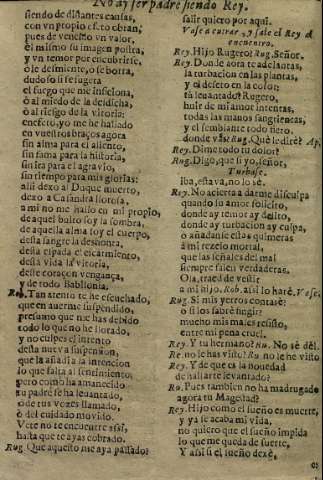 No ay ser padre siendo Rey.
siendo de distantes causas,
con vn propio efeto obran,
pues de vencello vn valor,
él mismo su imagen postra,
y vn temor por encubrirse,
ò le desmiente, ò se borra,
dudoso si se sugeta
el fuego que me
ò al miedo de la desdicha,
ò al riesgo de la vitoria:
enefeto, yo me he hallado
en vuestros braços agora
sin alma para el aliento,
sin fama para la historia,
sin ira para el agravio,
sin tiempo para mis glorias:
alli dexo al Duque muerto,
dexo a Casandra llorosa,
a mi no me hallo en mi propio,
de aquel bulto soy la sombra,
de aquella alma soy el cuerpo,
desta sangre la deshonra,
desta espada el escarmiento,
desta vida la vitoria,
deste coraçon vengança,
y de todo Babilonia.
Rey. Tan atento te he escuchado,
que en auerme suspendido,
presumo que me has debido
todo lo que no he llorado,
y no culpes el intento
desta nueva suspension,
que la añadia la intencion
lo que falta al sentimiento;
pero como ha amanecido
tu padre se ha leuantado,
ò de tus vozes llamado,
ò del cuidado movido.
Vete no te encuentre assi,
hasta que te ayas cobrado.
Rug. Que aquesto me aya passado?
salir quiero por aqui.
Vase a entrar, y sale el Rey al
encuentro.
Rey. Hijo Rugero? Rug. Señor.
Rey. Donde aora te adelantas,
la turbacion en las plantas,
y el deseto en la color:
tù leuantado? Rugero,
huir de mi amor intentas,
todas las manos sangrientas,
y el semblante todo fiero.
donde vàs? Rug. Què le dirè? Ap.
Rey. Dime todo tu dolor?
Rug. Digo, que si yo, señor,
Turbase.
iba, estava, no lo sè.
Rey. No acierta a darme disculpa
quando su amor solicito,
donde ay temor ay delito,
donde ay turbacion ay culpa,
ò añadanse estas quimeras
à mi rezelo mortal,
que las señales del mal
siempre salen verdaderas.
Ola, traed de vestir
a mi hijo. Rob. assi lo harè. Vase.
Rug. Si mis yerros contarè?
ò si los sabrè fingir?
mucho mis males resisto,
entre mi pena cruel.
Rey. Y tu hermano? Ru. No sè dèl.
Re. no le has visto? Ru. no le he visto
Rey. Y de que es la nouedad
de hallarte levantado?
Ru. Pues tambien no ha madrugado
agora tu Magestad?
Rey. Hijo como el sueño es muerte,
y ya se acaba mi vida,
no quiero que el sueño impida
lo que me queda de suerte,
Y assi si el sueño dexè,